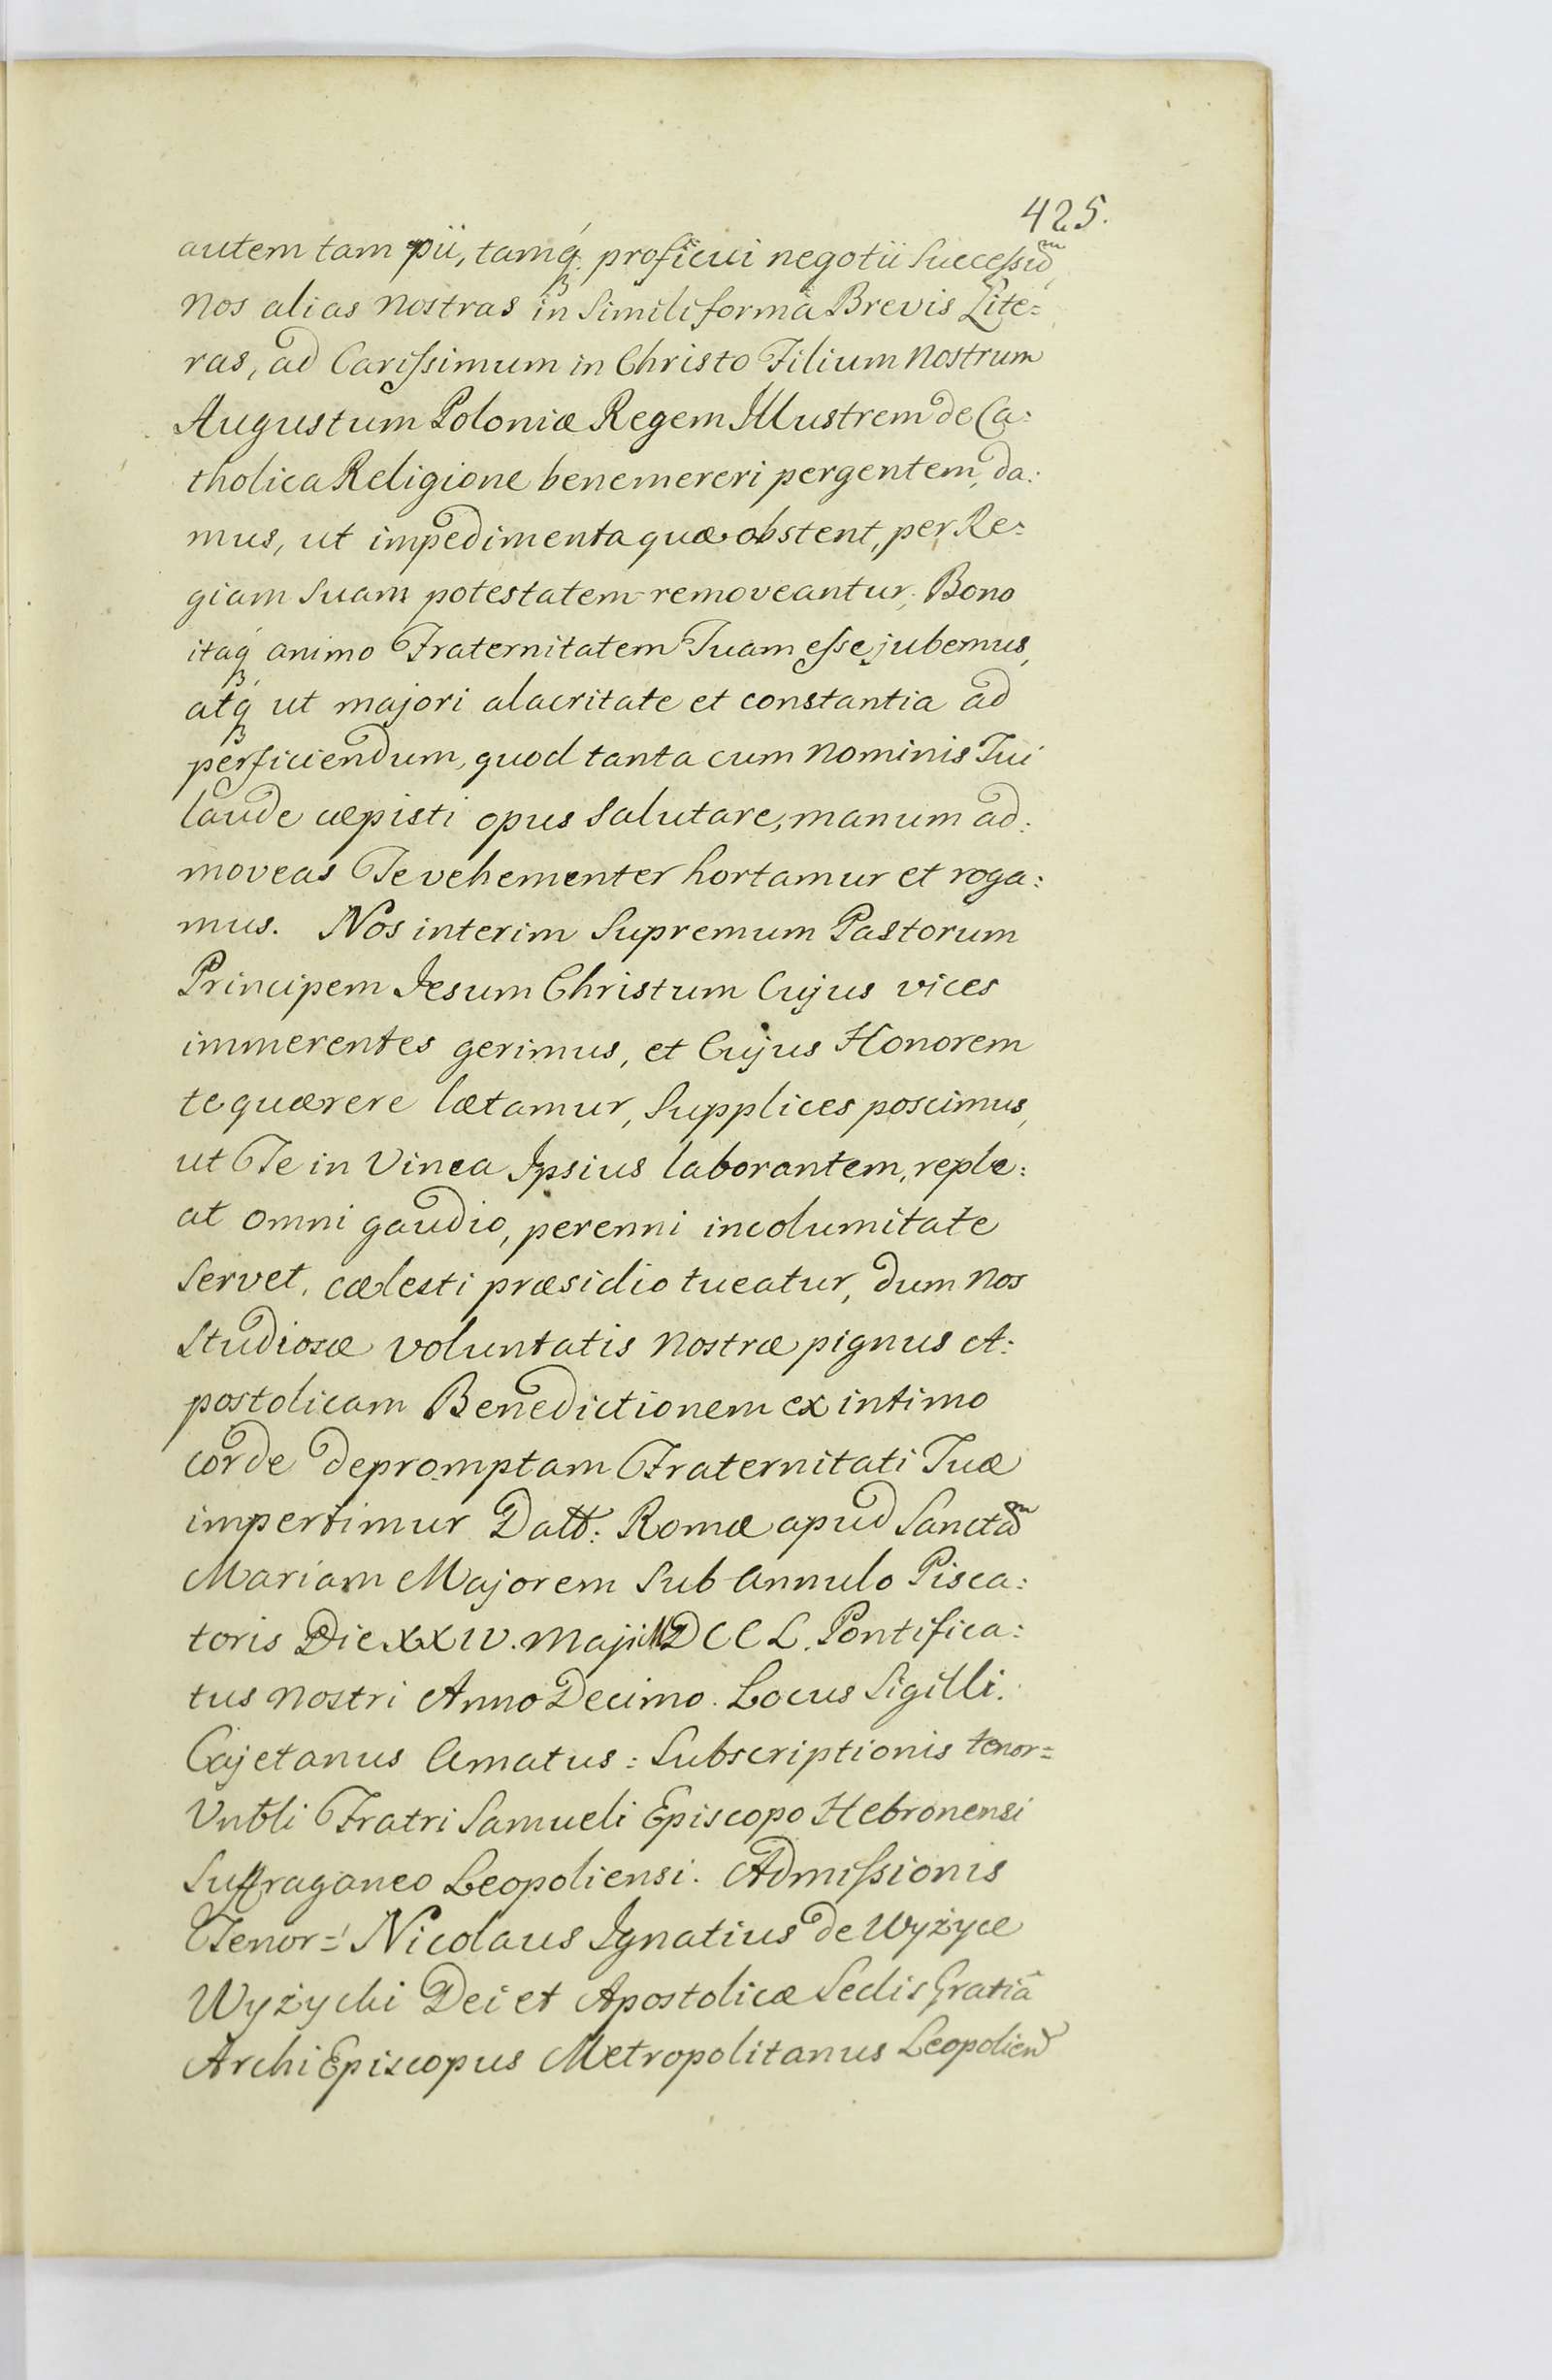 425.
autem tam pii, tamq; proficui negotii Successũ,
nos alias nostras in Simili formâ Brevis Lite=
ras, ad Carissimum in Christo Filium nostrum
Augustum Poloniæ Regem Illustrem de Ca:
tholica Religione benemereri pergentem, da:
mus, ut impedimenta quæ obstent, per Re=
giam Suam potestatem removeantur. Bono
itaq; animo Fraternitatem Tuam esse jubemus,
atq; ut majori alacritate et constantia ad
perficiendum, quod tanta cum nominis Tui
laude cæpisti opus Salutare, manum ad:
moveas Te vehementer hortamur et roga:
mus. Nos interim Supremum Pastorum
Principem Jesum Christum Cujus vices
immerentes gerimus, et Cujus Honorem
te quærere lætamur, Supplices poscimus,
ut Te in Vinea Ipsius laborantem, reple:
at omni gaudio, perenni incolumitate
Servet, cælesti præsidio tueatur, dum nos
Studiosæ voluntatis nostræ pignus A:
postolicam Benedictionem ex intimo
corde depromptam Fraternitati Tuæ
impertimur Datt: Romæ apud Sanctã
Mariam Majorem Sub Annulo Pisca:
toris Die XXIV. Maji MDCCL. Pontifica:
tus nostri Anno Decimo. Locus Sigilli.
Cajetanus Amatus: Subscriptionis tenor=
Vnbli Fratri Samueli Episcopo Hebronensi
Suffraganeo Leopoliensi. Admissionis
Tenor= Nicolaus Ignatius de Wyżyce
Wyżycki Dei et Apostolicæ Sedis Gratiâ
ArchiEpiscopus Metropolitanus Leopolien̄